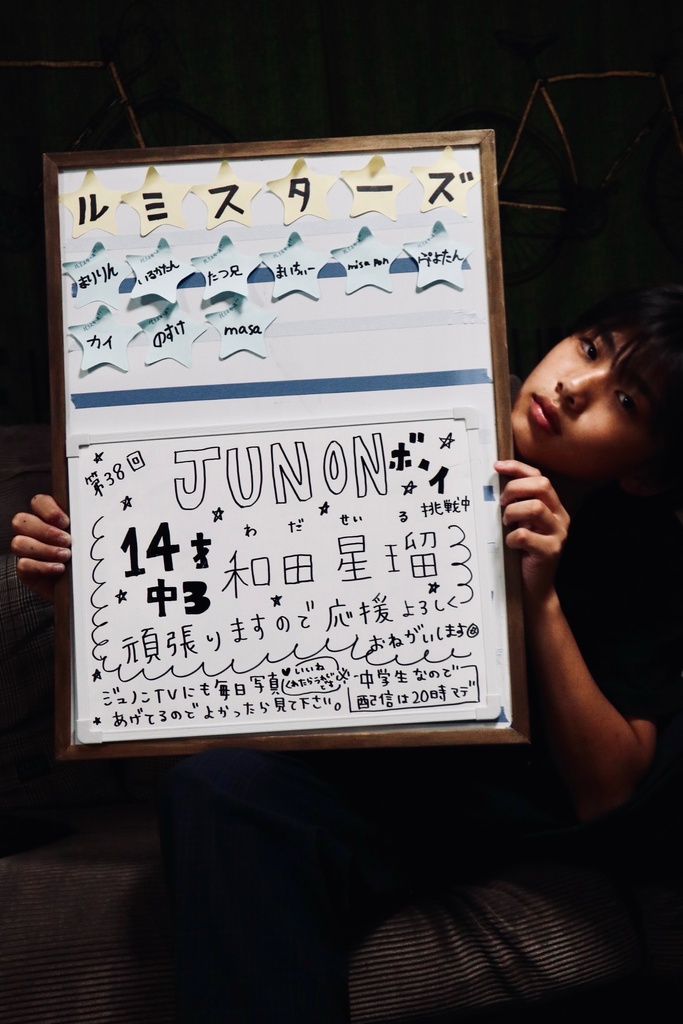 ルミスターズ
まりりん いるかたん たつ兄 まいちぃー misa pon ぴよたん
カイ のすけ masa
第38回 JUNONボーイ
挑戦中
わだ せいる
14才 和田 星瑠
中3
頑張りますので応援よろしく
おねがいします
ジュノンTVにも毎日写真
あげてるのでよかったら見て下さい。
いいね
くれたらうれしいです
中学生なので
配信は20時マデ